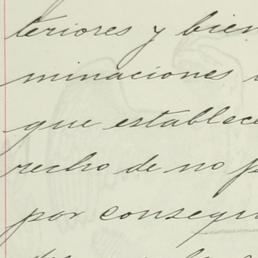 teriores y bien
minaciones
que establece
recho de no p
por consegu